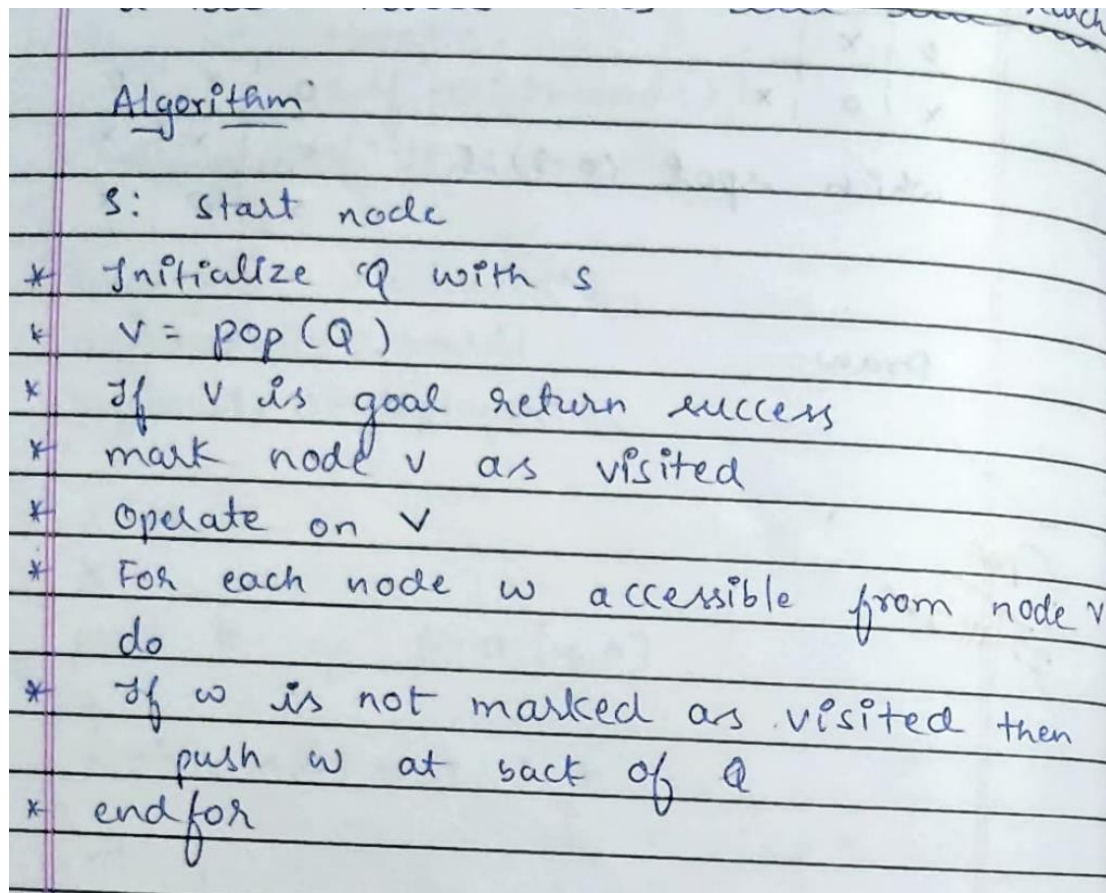 Algorithm
S: start node
* Initialize Q with s
* V = pop (Q)
* If v is goal return success
* mark node v as visited
* Operate on V
* For each node w accessible from node v
do
* If w is not marked as visited then
push w at back of Q
* end for